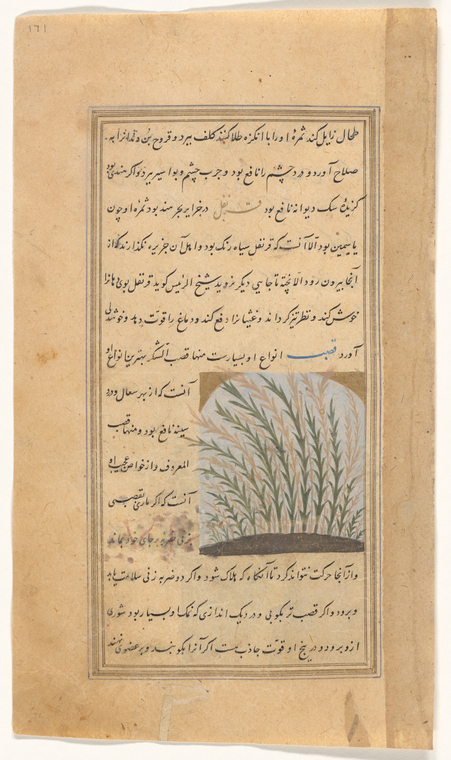 ۱۲۱
طحال زایل کند ثمرهٔ او را با انگزه طلا کنند کلف ببرد و قروح بن دندانرا به
صلاح آورد و درد چشم را نافع بود و جرب چشم و بواسیر ببرد و اگر بود
گزیدهٔ سگ دیوانه نافع بود قرنفل در جزایر بحر هند بود ثمرهٔ او چون
یاسمین بود الا آنست که قرنفل سیاه رنگ بود و اهل آن جزیره نگذارند که از
آنجا بیرون رود الا پخته تا جایی دیگر نروید شیخ الرئیس گوید قرنفل بوی دهانرا
خوش کند و نظر تیز گرداند و غشیانرا دفع کند و دماغ را قوت دهد و خوشدلی
آورد قصب انواع او بسیارست منها قصب السکر بهترین انواع او
آنست که از بهر سعال و درد
سینه نافع بود و منها قصب
المعروف و از خواص او
آنست که اگر مار را بقصبی
زنی ضربه بر جای خود بماند
و از آنجا حرکت نتواند کرد تا آنگاه که هلاک شود و اگر دو ضربه زنی سلامت یابد
و برود و اگر قصب تر بکوبی و در دیک اندازی که نمک او بسیار بود شوری
ازو برود و در بیخ او قوت جاذبه است اگر آنرا بکوبند و بر عضوی نهند